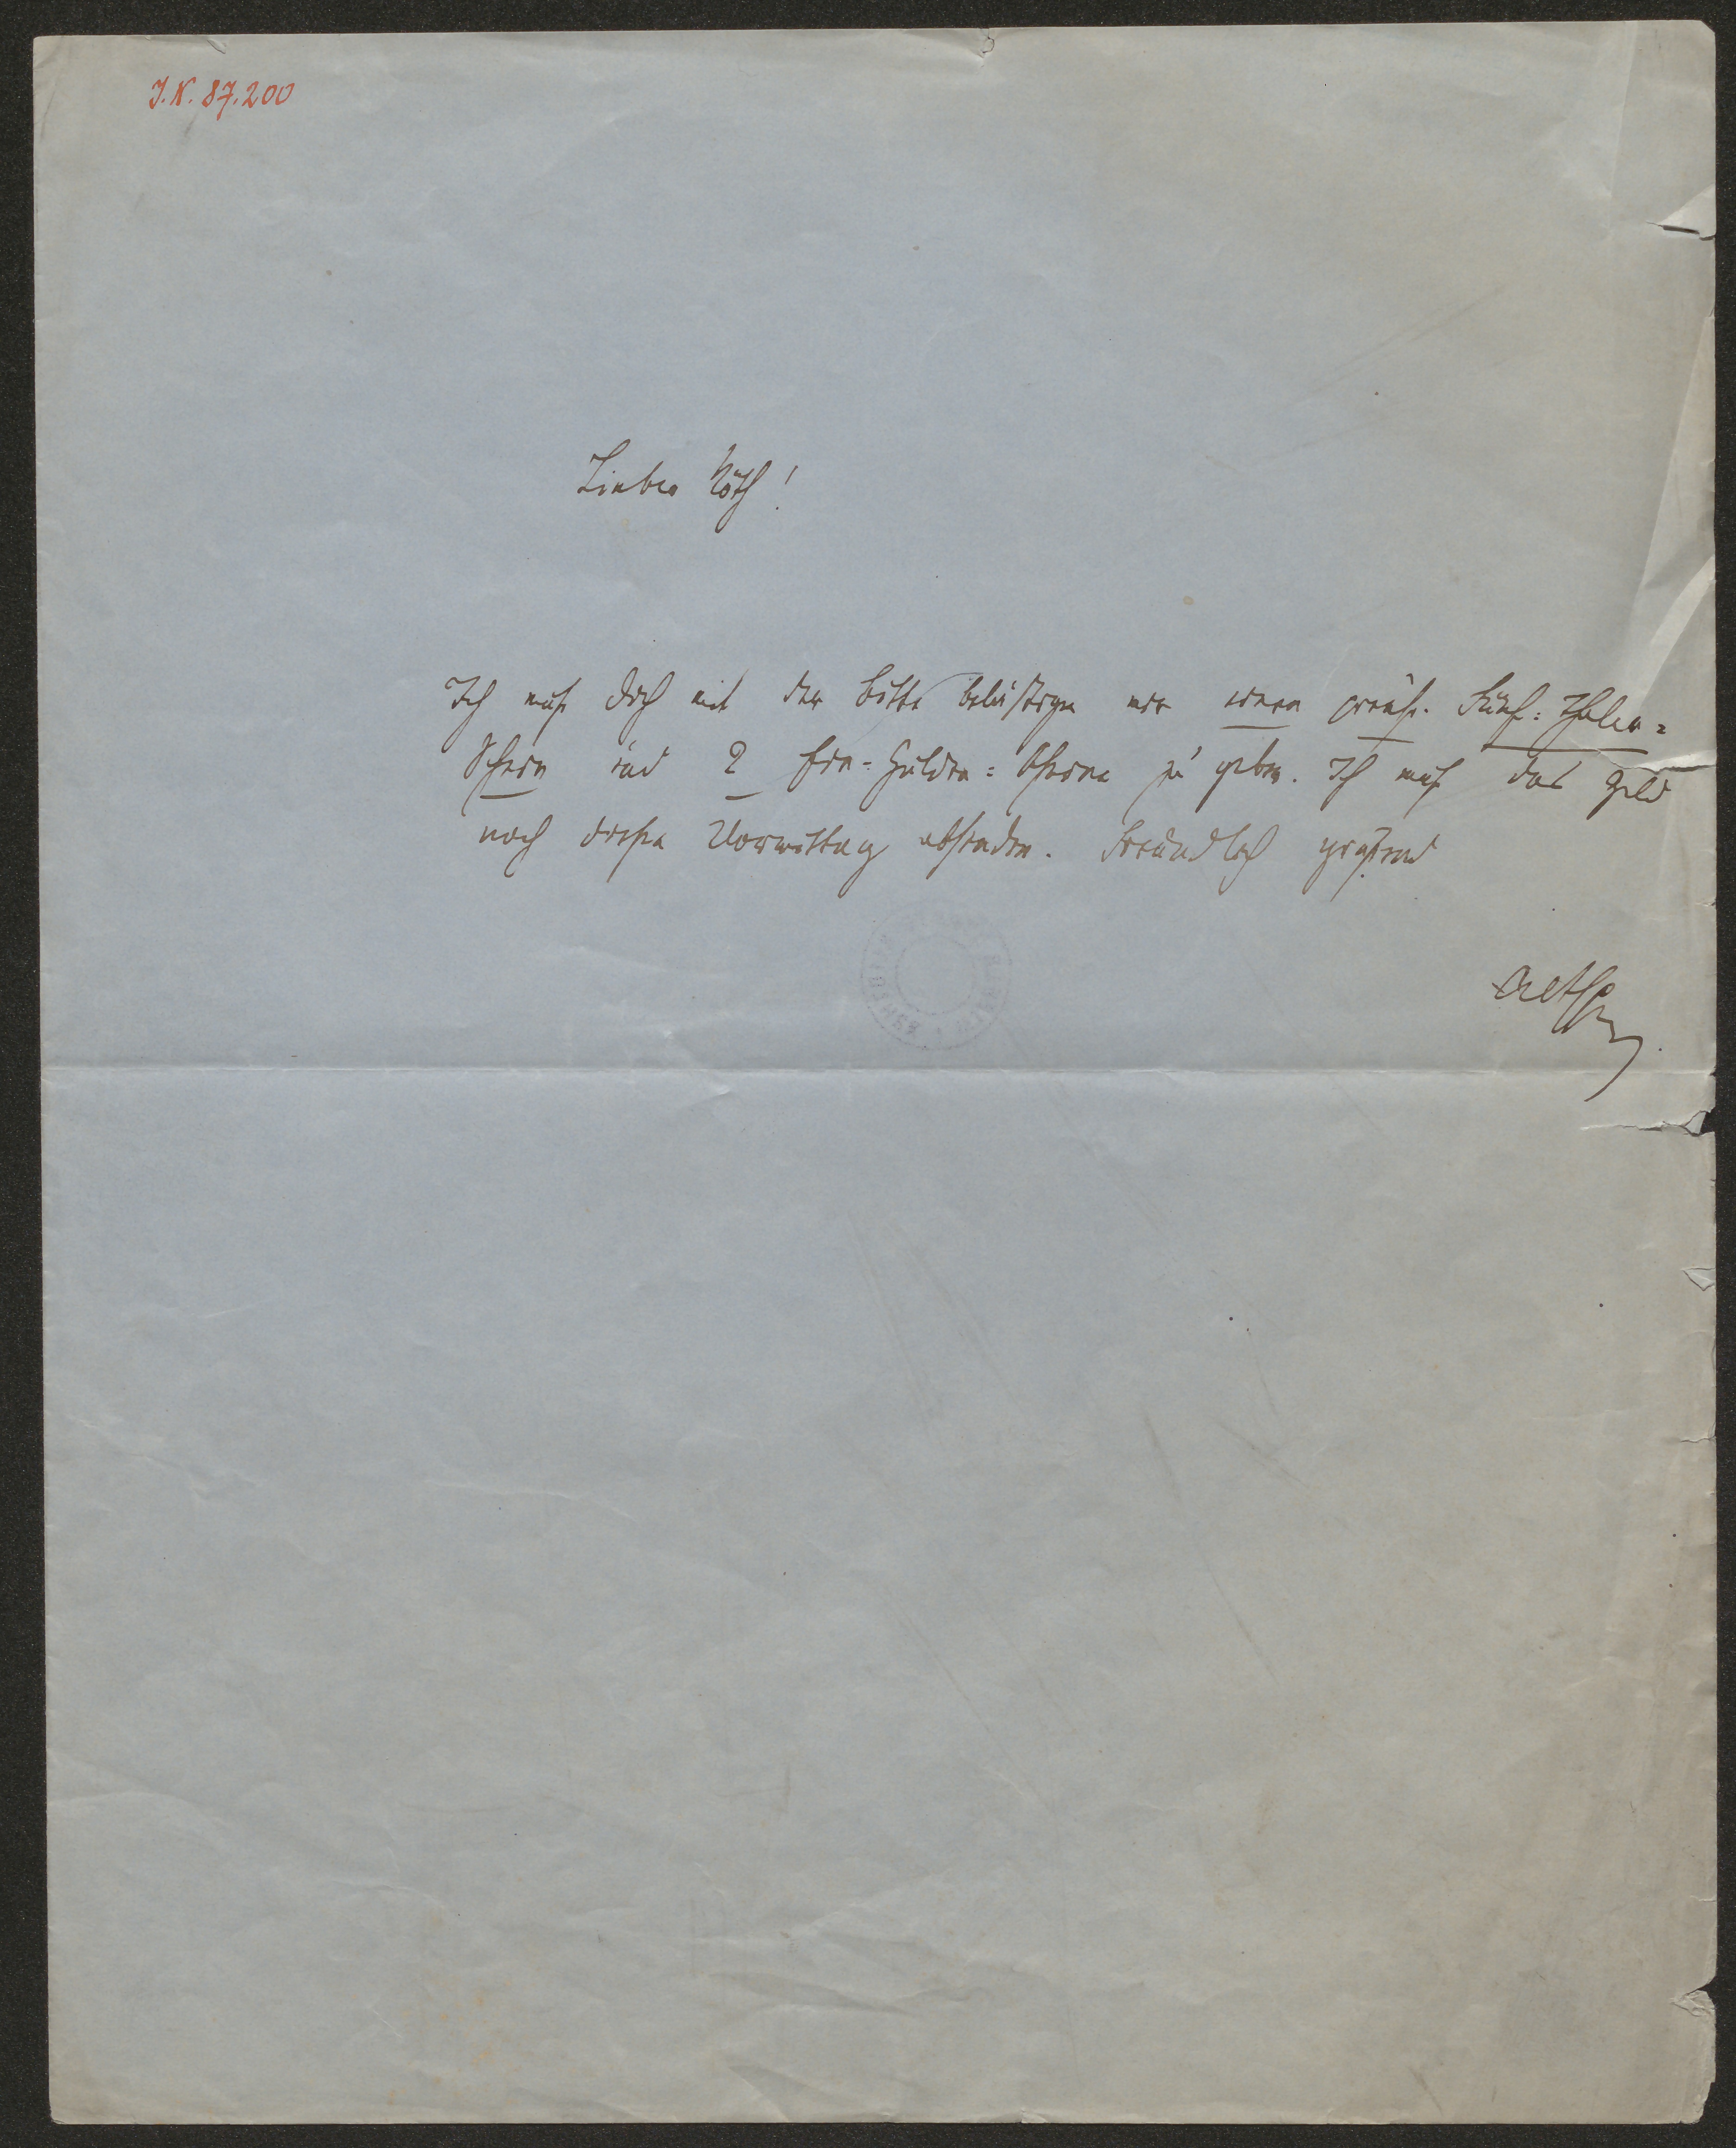 J.N. 87.200
Lieber Köth!
Ich muß dich mit der Bitte belästigen mir einen preuß. Fünf=Thaler=
Schein und 2 Ein=Gulden=Scheine zu geben. Ich muß das Geld
noch diesen Vormittag absenden. Freundlich grüßend